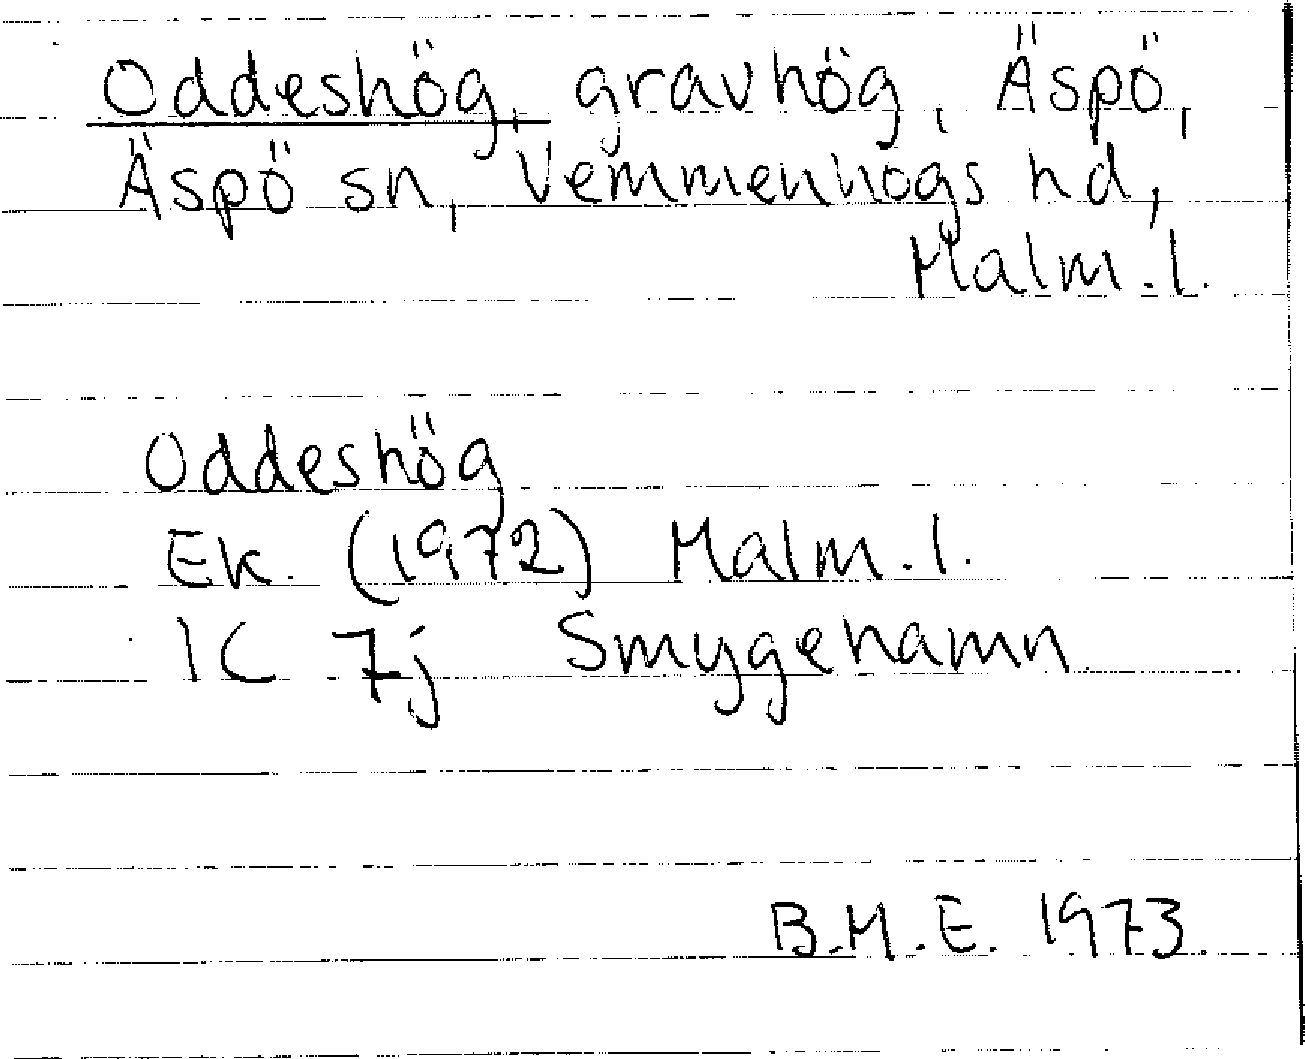 Oddeshög, gravhög, Äspö,
Äspö sn, Vemmenhögs hd,
Malm. l.
Oddeshög
Ek. (1972) Malm. l.
1C 7j Smygehamn
B.M.E. 1973.